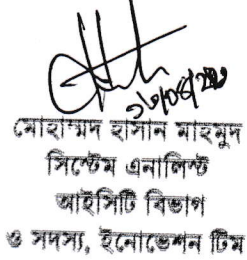 মোহাম্মদ হাসান মাহমুদ
সিস্টেম এনালিস্ট
আইসিটি বিভাগ
ও সদস্য, ইনোভেশন টিম